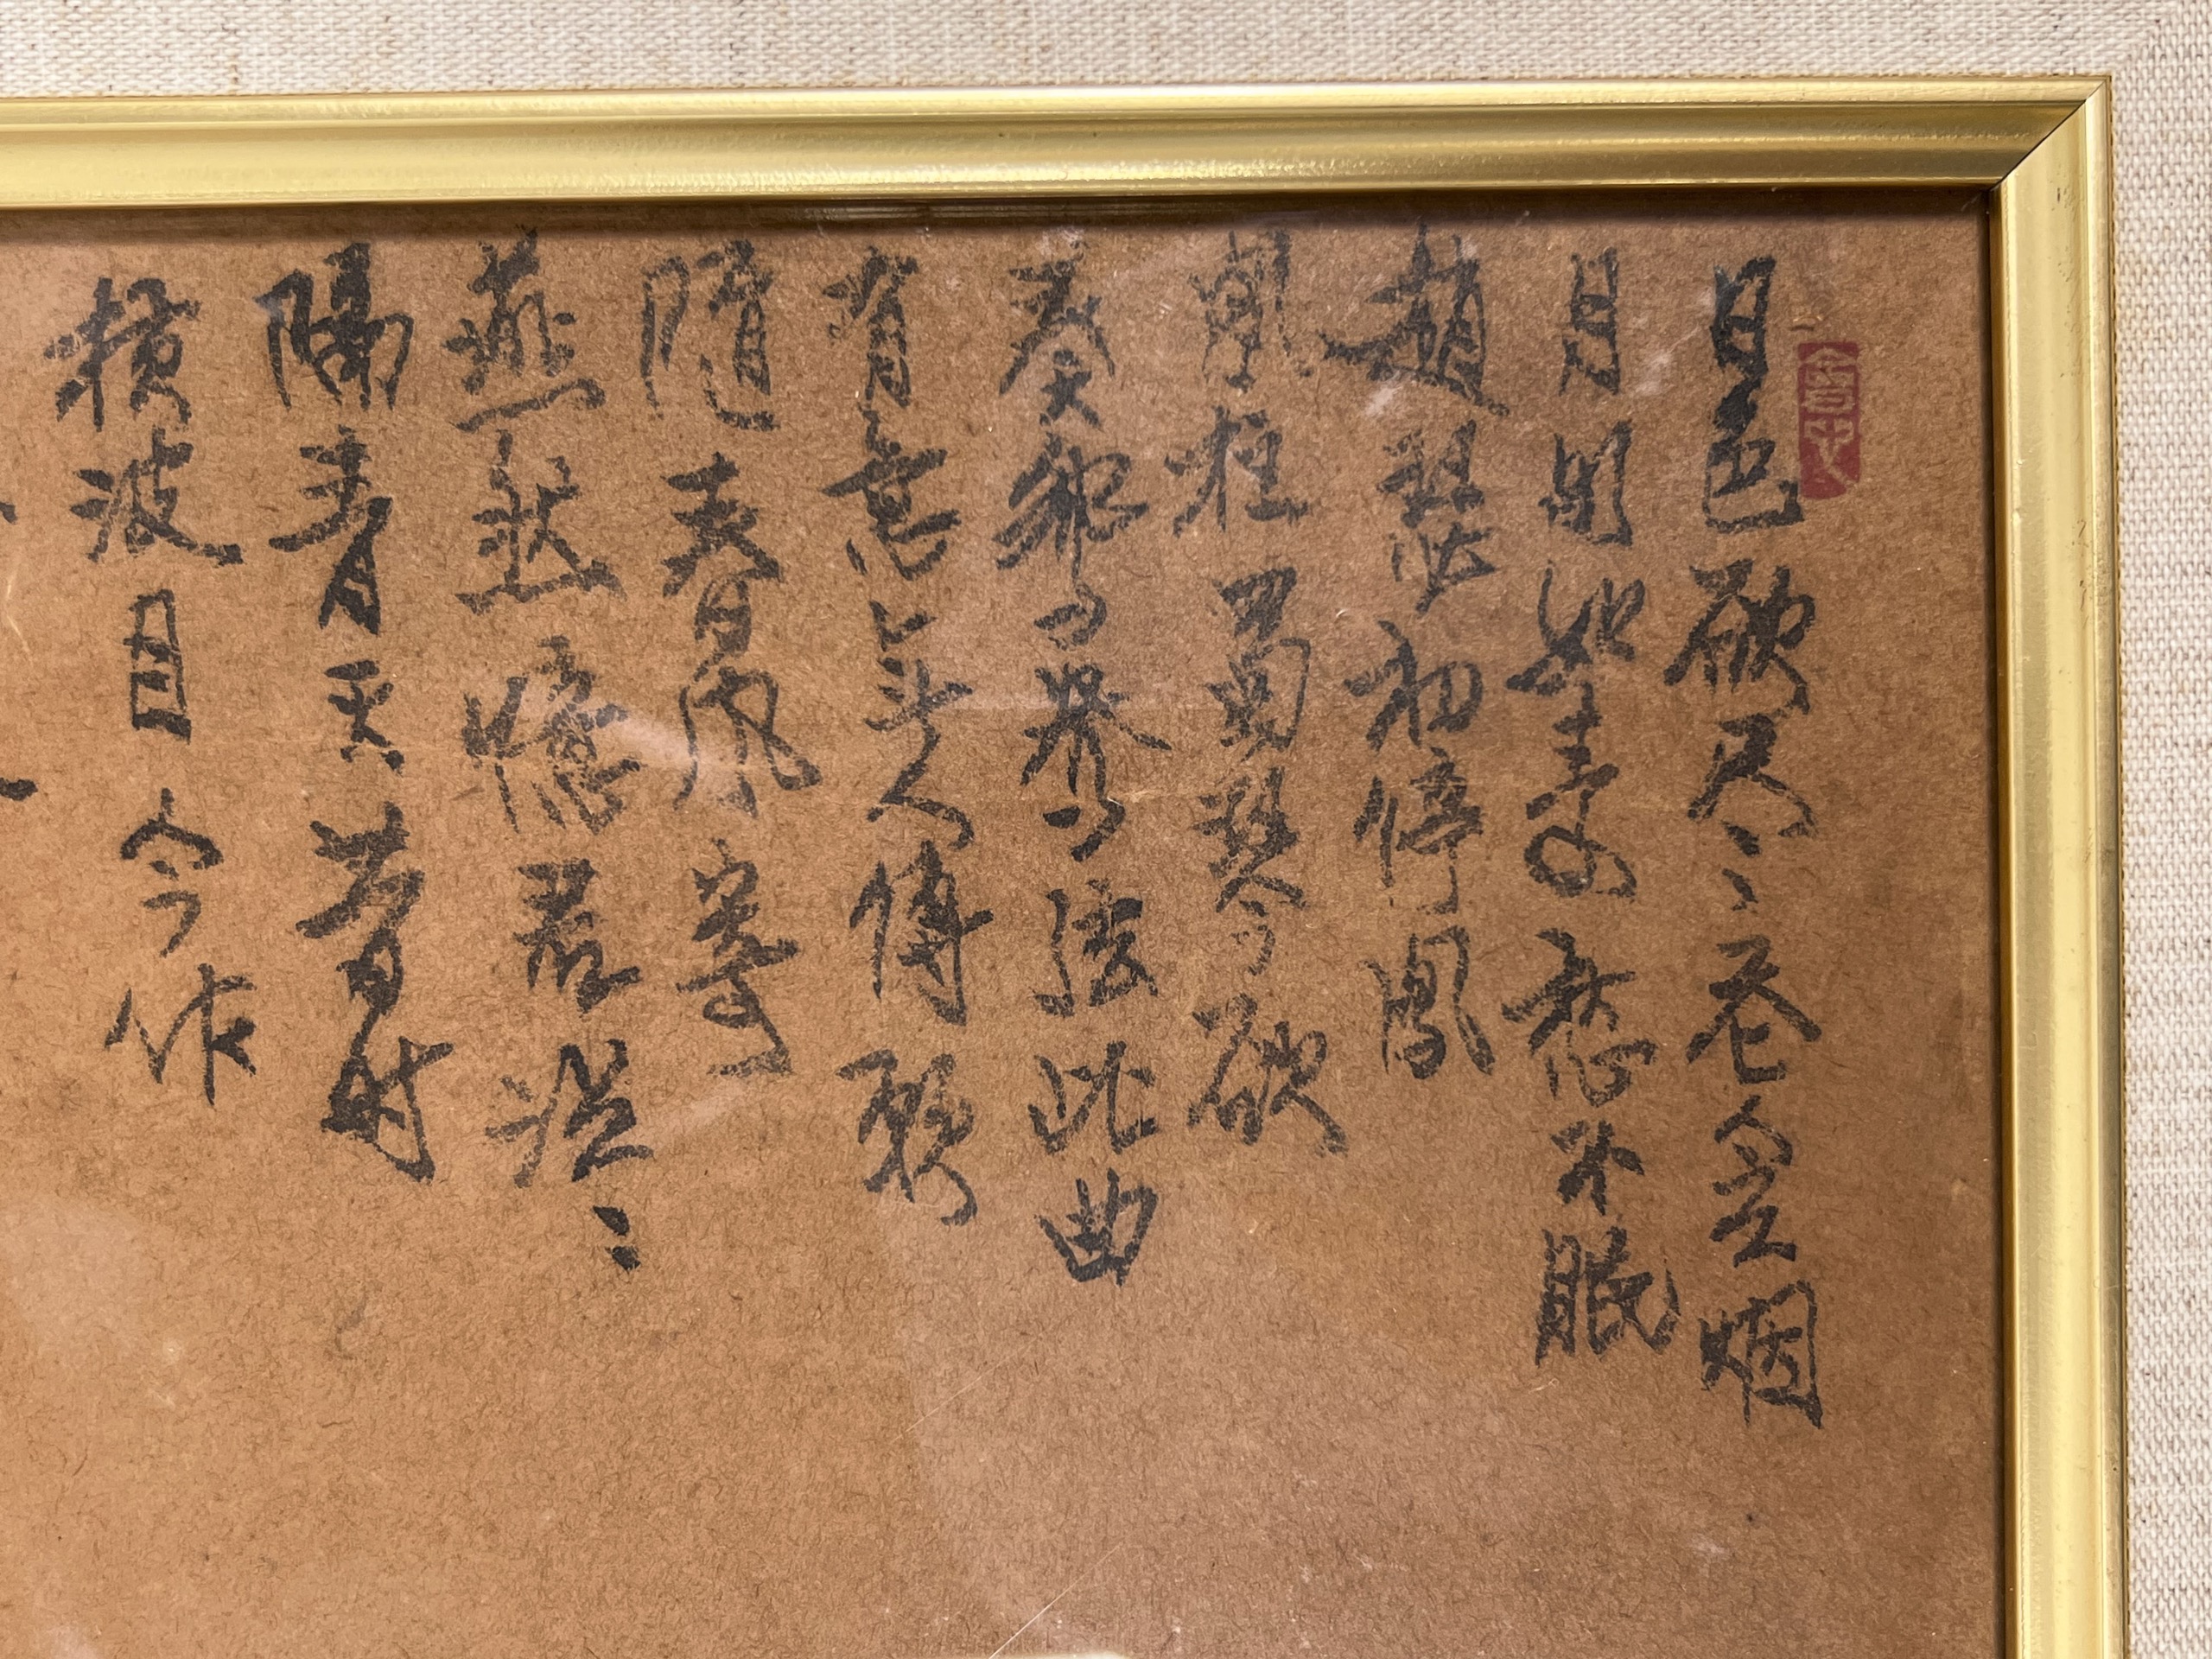 日色欲尽花含烟
月明如素愁不眠
趙瑟初停鳳
凰柱蜀琴欲
奏鴛鴦弦此曲
有意無人傳願
隨春風寄
燕然憶君迢〻
隔青天昔時
横波目今作